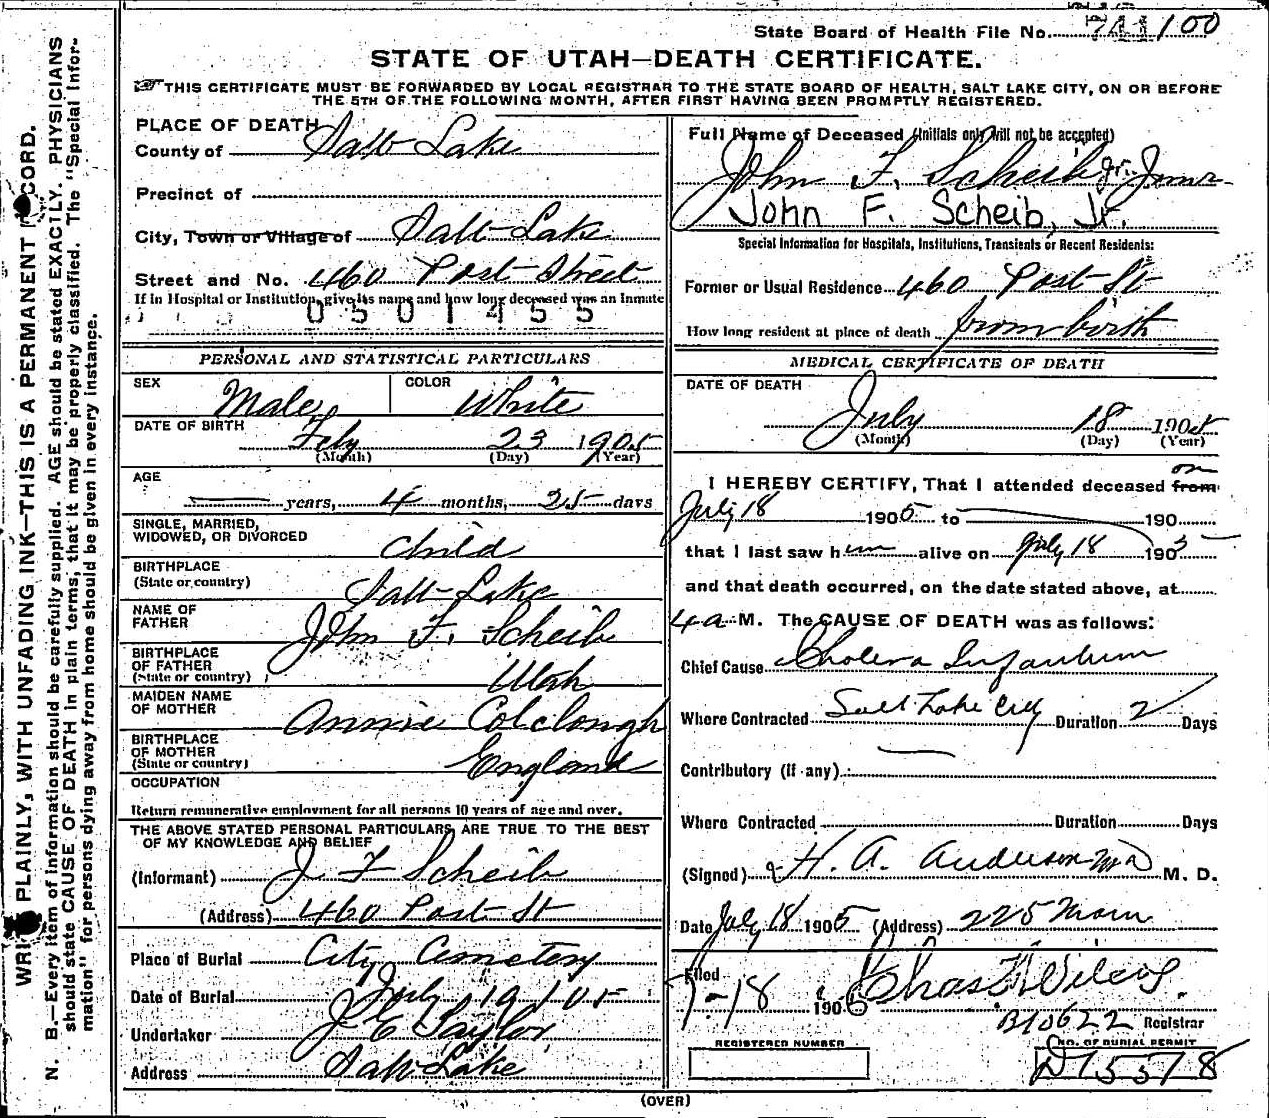 State Board of Health File No. 741100
STATE OF UTAH—DEATH CERTIFICATE.
THIS CERTIFICATE MUST BE FORWARDED BY LOCAL REGISTRAR TO THE STATE BOARD OF HEALTH, SALT LAKE CITY, ON OR BEFORE
THE 5TH OF THE FOLLOWING MONTH, AFTER FIRST HAVING BEEN PROMPTLY REGISTERED.
PLACE OF DEATH
County of Salt Lake
Precinct of
City, Town or Village of Salt Lake
Street and No. 460 Post Street
If in Hospital or Institution, give its name and how long deceased was an Inmate
0501455
PERSONAL AND STATISTICAL PARTICULARS
SEX Male COLOR White
DATE OF BIRTH
Feby 23 1905
(Month) (Day) (Year)
AGE
years, 4 months, 25 days
SINGLE, MARRIED,
WIDOWED, OR DIVORCED child
BIRTHPLACE
(State or country) Salt Lake
NAME OF
FATHER John F. Scheib
BIRTHPLACE
OF FATHER
(State or country) Utah
MAIDEN NAME
OF MOTHER Annie Colclough
BIRTHPLACE
OF MOTHER
(State or country) England
OCCUPATION
Return remunerative employment for all persons 10 years of age and over.
THE ABOVE STATED PERSONAL PARTICULARS ARE TRUE TO THE BEST
OF MY KNOWLEDGE AND BELIEF
(Informant) J F Scheib
(Address) 460 Post St
Place of Burial City Cemetery
Date of Burial July 19 1905
Undertaker Taylor
Address Salt Lake
Full Name of Deceased (Initials only will not be accepted)
John F. Scheib Jr.
John F. Scheib, Jr.
Special Information for Hospitals, Institutions, Transients or Recent Residents:
Former or Usual Residence 460 Post St
How long resident at place of death from birth
MEDICAL CERTIFICATE OF DEATH
DATE OF DEATH
July 18 1905
(Month) (Day) (Year)
on
I HEREBY CERTIFY, That I attended deceased from
July 18 1905 to 190
that I last saw him alive on July 18 1905
and that death occurred, on the date stated above, at
4 a M. The CAUSE OF DEATH was as follows:
Chief Cause Cholera Infantum
Where Contracted Salt Lake City Duration 2 Days
Contributory (If any)
Where Contracted Duration Days
(Signed) H. A. Anderson M D M. D.
Date July 18 1905 (Address) 225 Main
Filed
7-18 1905 Chas
B10622 Registrar
REGISTERED NUMBER
NO. OF BURIAL PERMIT
D15578
(OVER)
PLAINLY, WITH UNFADING INK—THIS IS A PERMANENT
N. B.—Every item of information should be carefully supplied. AGE should be stated EXACTLY. PHYSICIANS
should state CAUSE OF DEATH in plain terms, that it may be properly classified. The "Special Infor-
mation" for persons dying away from home should be given in every instance.